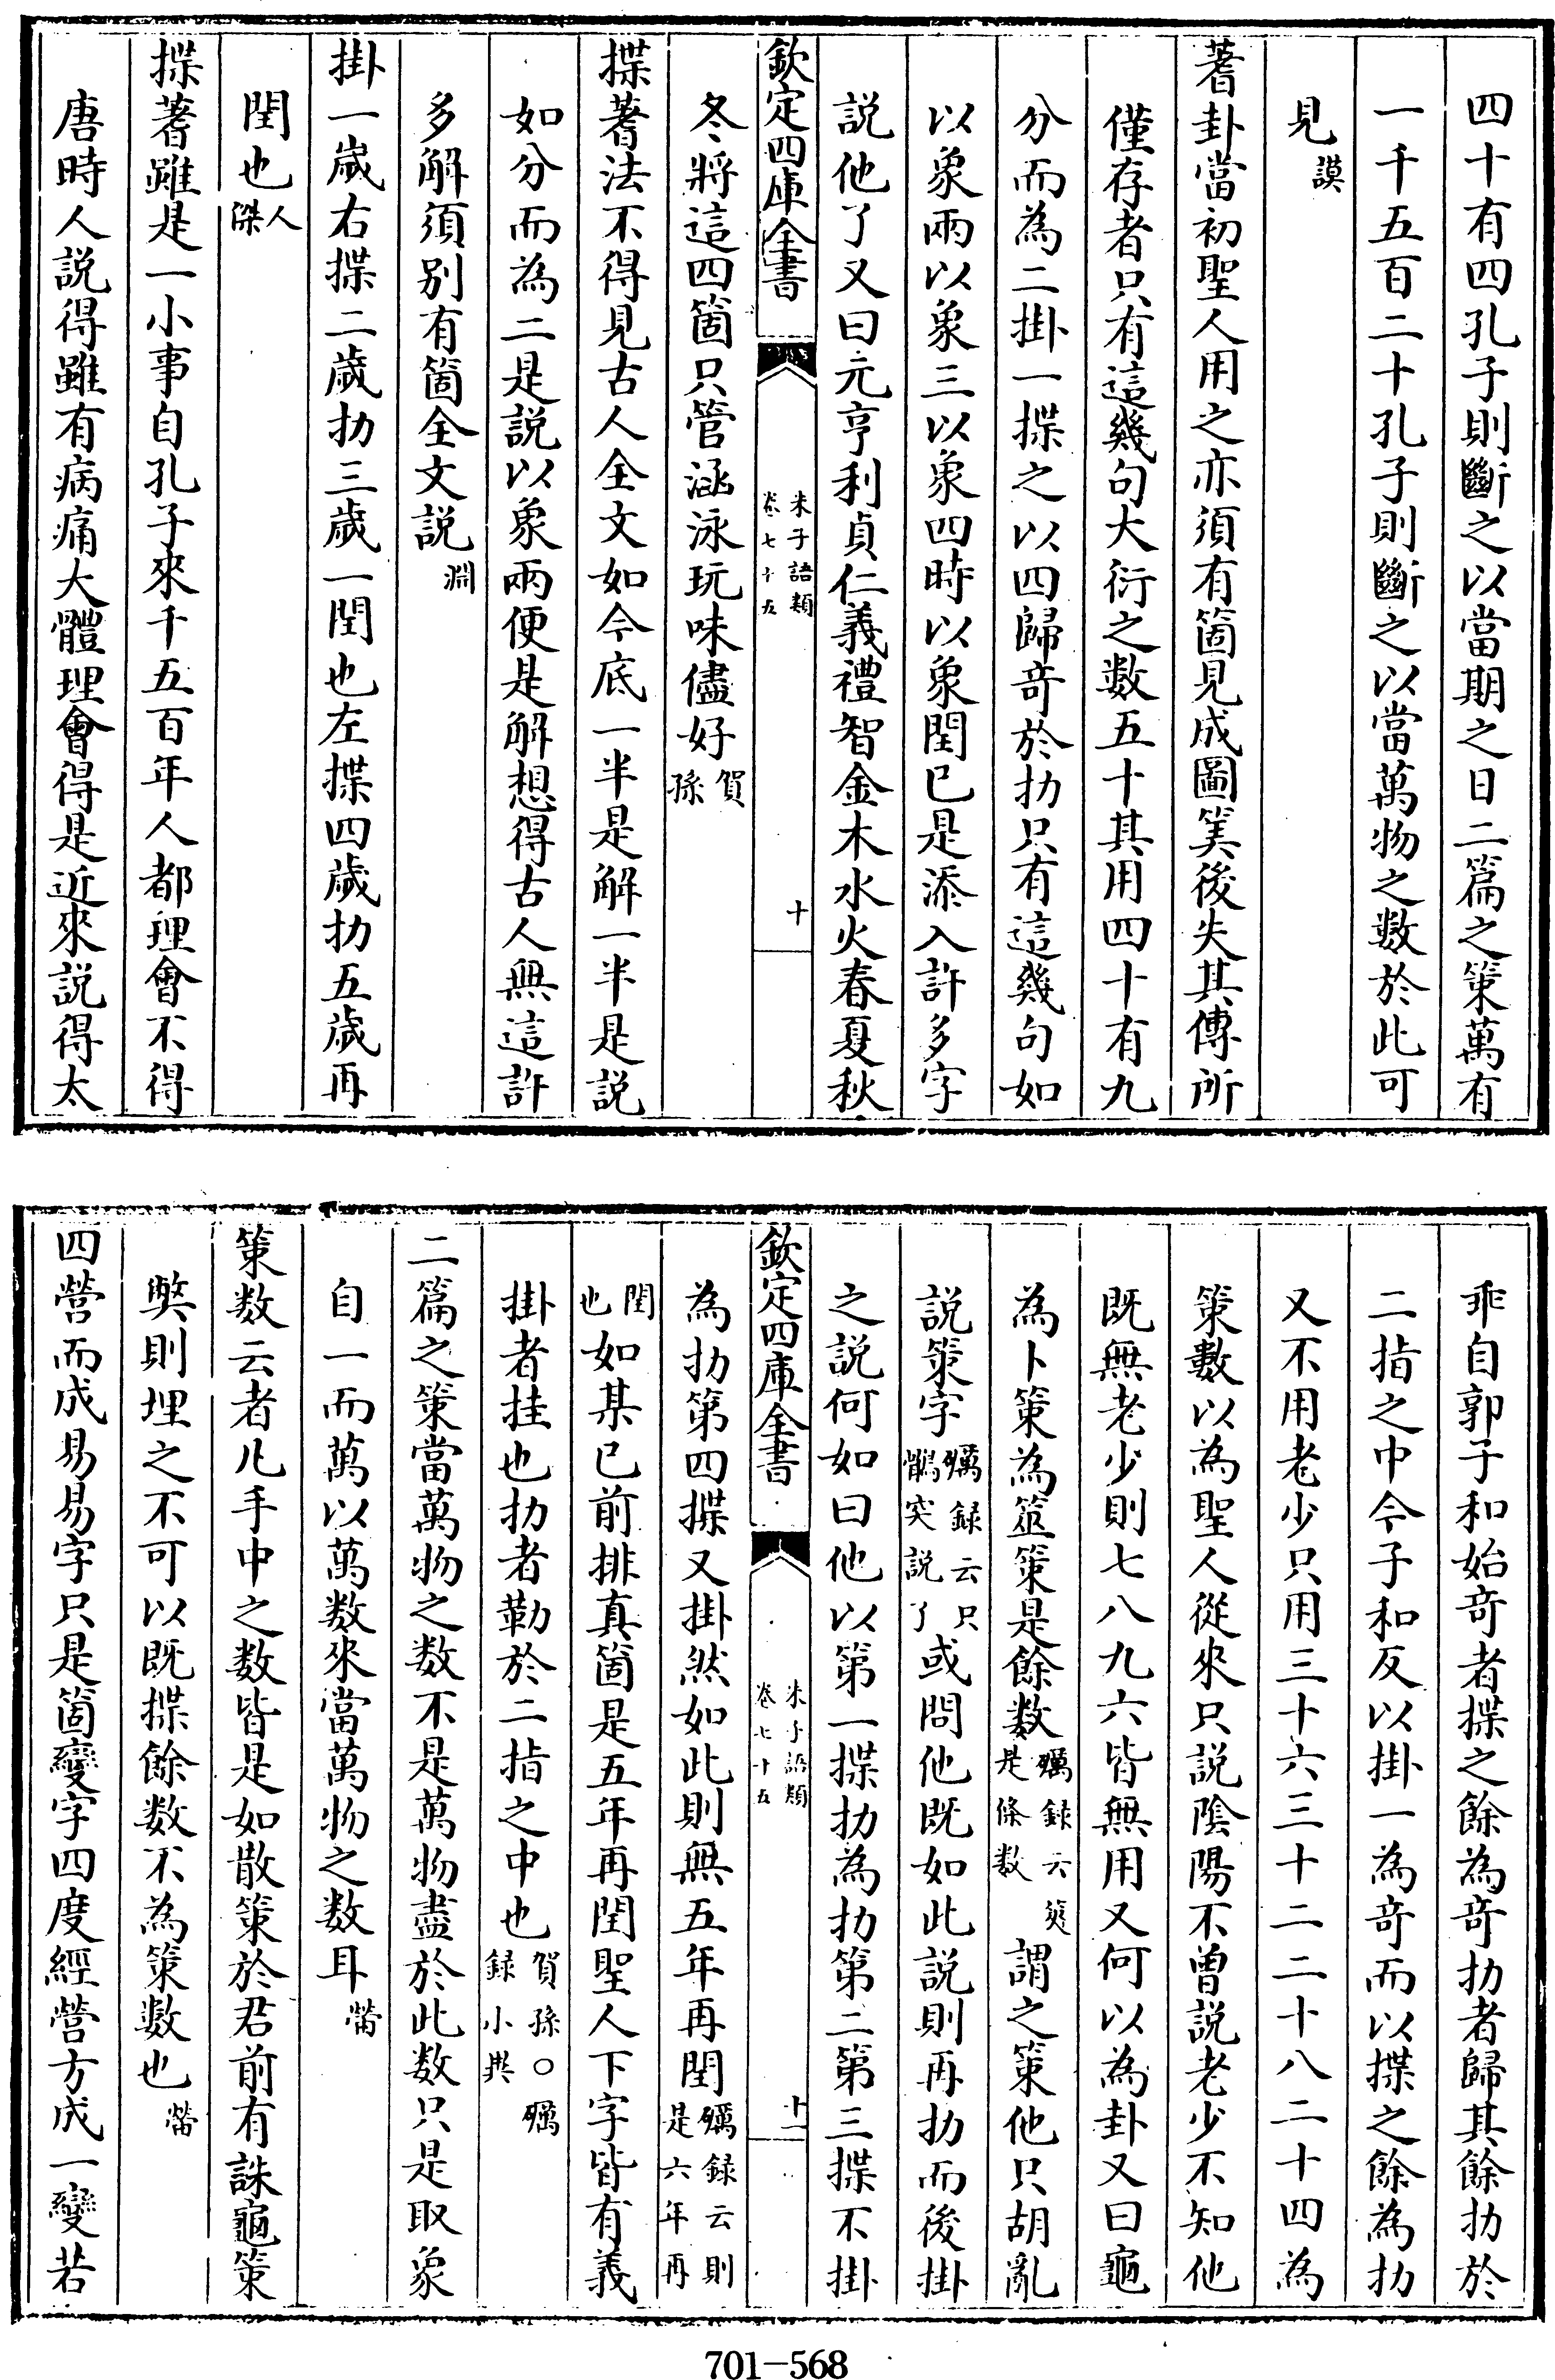 四十有四孔子則斷之以當期之日二篇之策萬有
一千五百二十孔子則斷之以當萬物之數於此可
見謨
蓍卦當初聖人用之亦須有箇見成圖筭後失其傳所
僅存者只有這幾句大衍之数五十其用四十有九
分而為二掛一揲之以四歸奇於扐只有這幾句如
以象兩以象三以象四時以象閏已是添入許多字
説他了又曰元亨利貞仁義禮智金木水火春夏秋
欽定四庫全書
朱子語類
卷七十五
十
冬將這四箇只管涵泳玩味儘好賀孫
揲蓍法不得見古人全文如今底一半是解一半是説
如分而為二是説以象兩便是解想得古人無這許
多解須別有箇全文説淵
掛一嵗右揲二歲扐三歲一閏也左揲四歲扐五歲再
閏也人傑
揲蓍雖是一小事自孔子來千五百年人都理會不得
唐時人説得雖有病痛大體理會得是近來説得太
乖自郭子和始奇者揲之餘為奇扐者歸其餘扐於
二指之中今子和反以掛一為奇而以揲之餘為扐
又不用老少只用三十六三十二二十八二十四為
策數以為聖人從來只説陰陽不曽説老少不知他
既無老少則七八九六皆無用又何以為卦又曰龜
為卜策為筮策是餘数礪録云筴是條数謂之策他只胡亂
説策字礪録云只鶻突説了或問他既如此説則再扐而後掛
之説何如曰他以第一揲扐為扐第二第三揲不掛
欽定四庫全書
朱子語類
卷七十五
十一
為扐第四揲又掛然如此則無五年再閏礪録云則是六年再
閏也如某已前排真箇是五年再閏聖人下字皆有義
掛者挂也扐者勒於二指之中也賀孫○礪録小異
二篇之策當萬物之数不是萬物盡於此数只是取象
自一而萬以萬数來當萬物之数耳㽦
策数云者凡手中之数皆是如散策於君前有誅龜策
弊則埋之不可以既揲餘数不為策数也㽦
四營而成易易字只是箇變字四度經營方成一變若
701－568